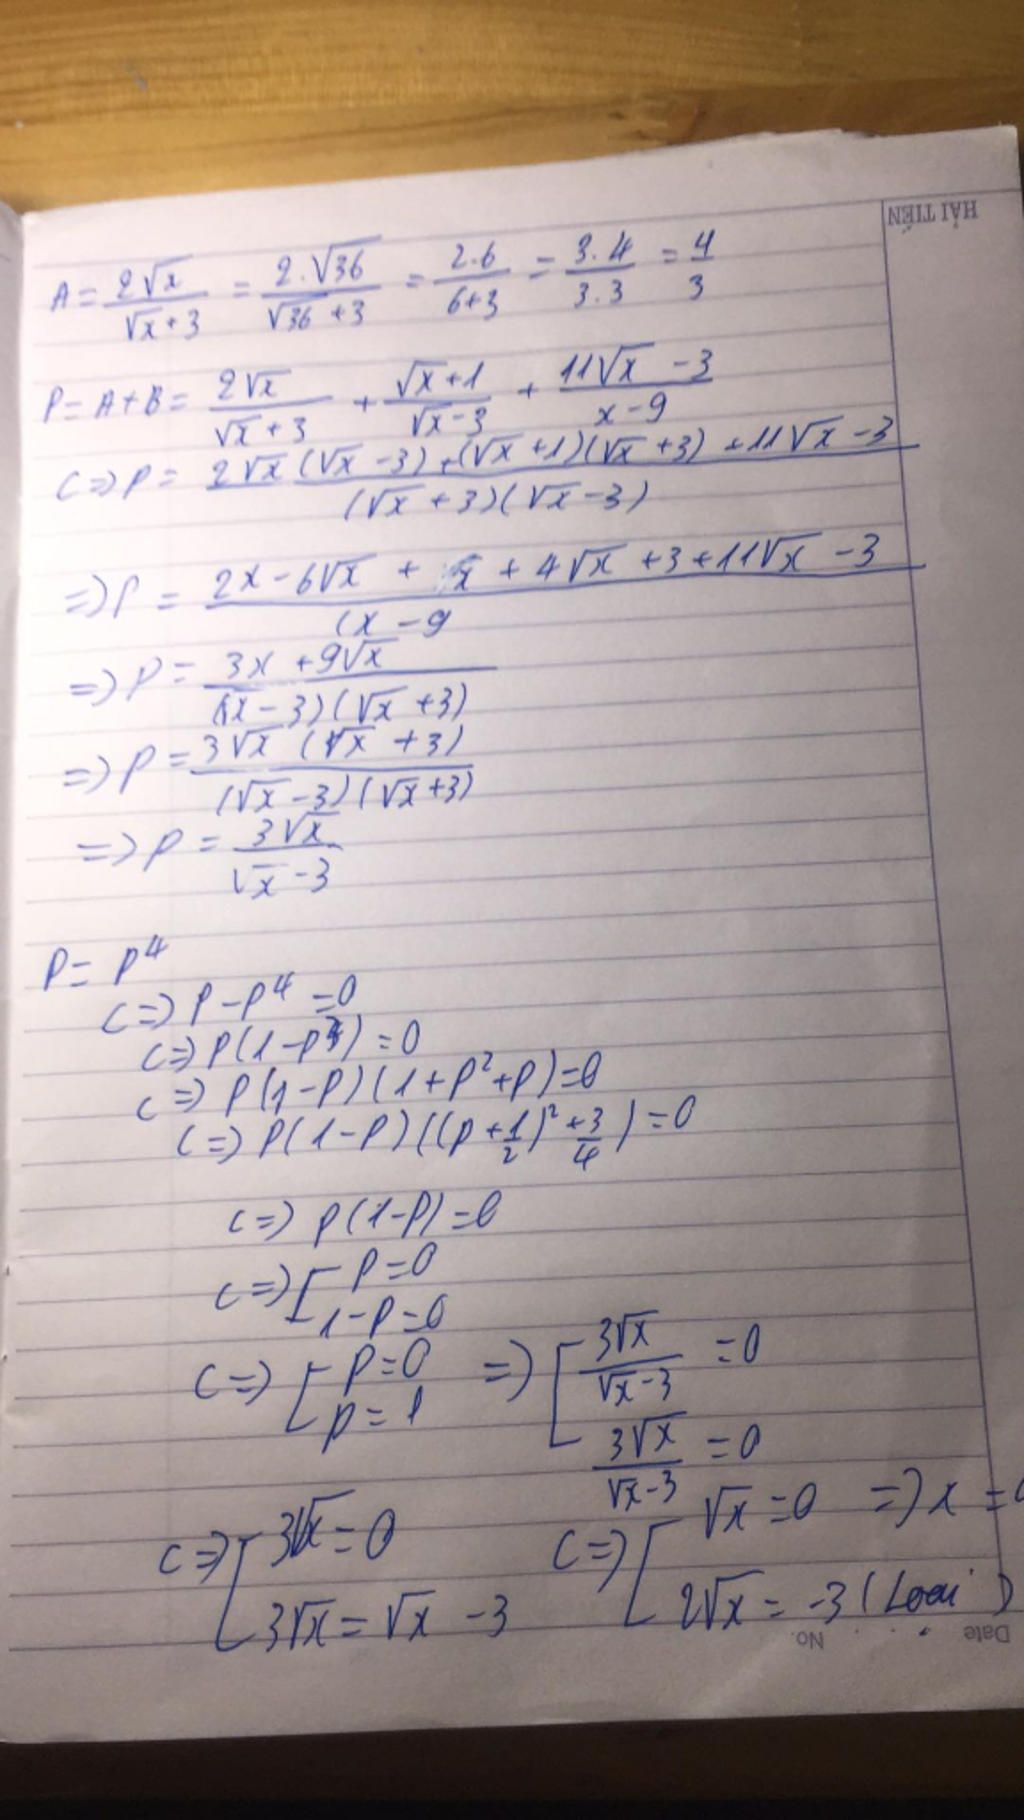 HẢI TIẾN
A = 2√x / √x + 3 = 2.√36 / √36 + 3 = 2.6 / 6+3 = 3.4 / 3.3 = 4 / 3
P = A + B = 2√x / √x + 3 + √x + 1 / √x - 3 + 11√x - 3 / x - 9
<=> P = 2√x (√x - 3) + (√x + 1)(√x + 3) + 11√x - 3 / (√x + 3)(√x - 3)
=> P = 2x - 6√x + x + 4√x + 3 + 11√x - 3 / (x - 9
=> P = 3x + 9√x / (√x - 3)(√x + 3)
=> P = 3√x (√x + 3) / (√x - 3)(√x + 3)
=> P = 3√x / √x - 3
P = P⁴
<=> P - P⁴ = 0
<=> P(1 - P³) = 0
<=> P(1 - P)(1 + P² + P) = 0
<=> P(1 - P)((P + 1/2)² + 3/4) = 0
<=> P(1 - P) = 0
<=> [ P = 0
1 - P = 0
<=> [ P = 0 => [ 3√x / √x - 3 = 0
P = 1 3√x / √x - 3 = 0
<=> [ 3√x = 0 <=> [ √x = 0 => x = 0
3√x = √x - 3 2√x = -3 (Loại)
Date No.